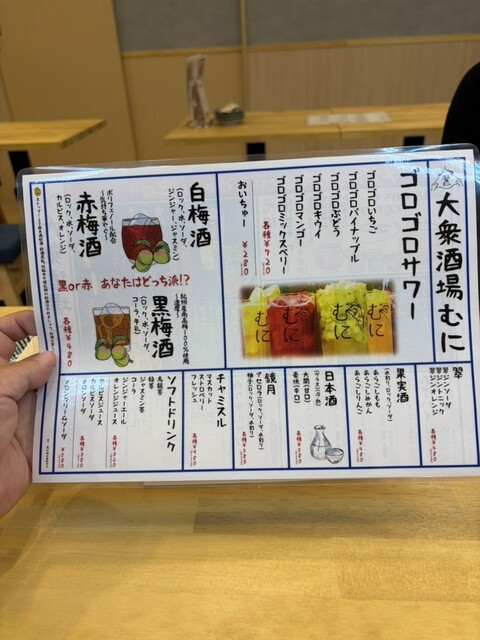 大衆酒場 むに
ゴロゴロサワー
ゴロゴロいちご
ゴロゴロパイナップル
ゴロゴロぶどう
ゴロゴロキウイ
ゴロゴロマンゴー
ゴロゴロミックスベリー
各種¥720
おいちゅー
¥280
むに
むに
むに
むに
白梅酒
(ロック、水、ソーダ、
ジンジャー、ジャスミン)
赤梅酒
ポリフェノール配合
(ロック、水、ソーダ、
カルピス、オレンジ)
黒or赤 あなたはどっち派!?
黒梅酒
紀州産南高梅100%使用
~濃厚~
(ロック、水、ソーダ、
コーラ、牛乳)
各種¥480
翠
翠ジンソーダ
翠ジントニック
翠ジンバック
果実酒
(水割り、ロック、ソーダ)
あらごしもも
あらごしみかん
あらごしりんご
日本酒
大関(甘口)
鏡月
アセロラ(ロック、ソーダ、水割り)
柚子(ロック、ソーダ、水割り)
チャミスル
マスカット
ストロベリー
フレッシュ
ソフトドリンク
烏龍茶
緑茶
ジャスミン茶
コーラ
ジンジャーエール
オレンジジュース
カルピスジュース
カルピスソーダ
メロンソーダ
メロンクリームソーダ